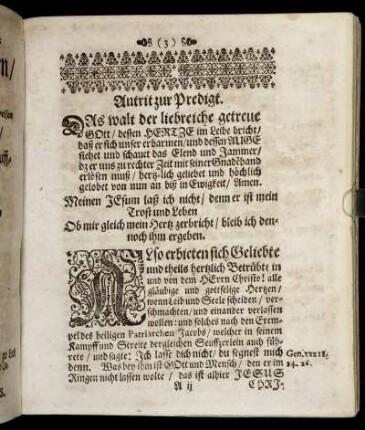 ( 3 )
Antrit zur Predigt.
DAs walt der liebreiche getreue
GOtt / dessen HERTZE im Leibe bricht /
daß er sich unser erbarmen / und dessen AUGE
siehet und schauet das Elend und Jammer /
dz er uns zu rechter Zeit mit seiner Gnadhand
erlösen muß / hertz-lich geliebet und höchlich
gelobet von nun an biß in Ewigkeit / Amen.
Meinen JEsum laß ich nicht / denn er ist mein
Trost und Leben
Ob mir gleich mein Hertz zerbricht / bleib ich den-
noch ihm ergeben.
ALso erbieten sich Geliebte
und theils hertzlich Betrübte in
und von dem HErrn Christo! alle
gläubige und gottselige Hertzen /
wenn Leib und Seele scheiden / ver-
schmachten / und einander verlassen
wollen: und solches nach den Exem-
pel des heiligen Patriarchen Jacobs / welcher in seinem
Kampff und Streite dergleichen Seufftzerlein auch füh-
rete / und sagte: Ich lasse dich nicht / du segnest mich
denn. Was bey ihm ist GOtt und Mensch / den er im
Ringen nicht lassen wolte / das ist alhier JESUS
A ij CHRI-
Gen. XXXII.
24. 26.